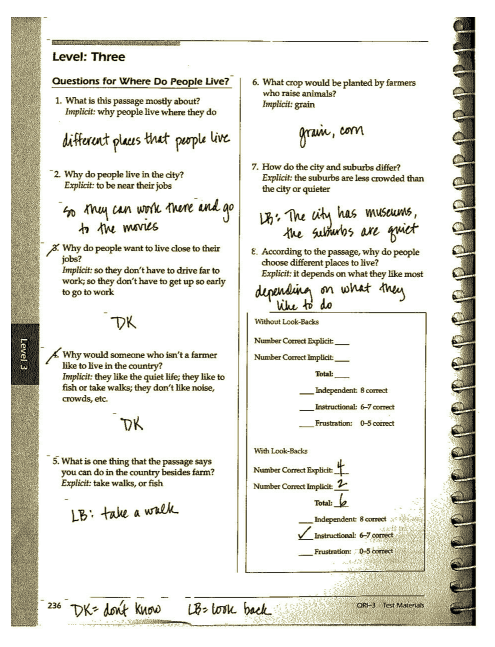 Level: Three
Questions for Where Do People Live?
1. What is this passage mostly about?
Implicit: why people live where they do
different places that people live
2. Why do people live in the city?
Explicit: to be near their jobs
so they can work there and go
to the movies
3. Why do people want to live close to their
jobs?
Implicit: so they don't have to drive far to
work; so they don't have to get up so early
to go to work
DK
4. Why would someone who isn't a farmer
like to live in the country?
Implicit: they like the quiet life; they like to
fish or take walks; they don't like noise,
crowds, etc.
DK
5. What is one thing that the passage says
you can do in the country besides farm?
Explicit: take walks, or fish
LB: take a walk
6. What crop would be planted by farmers
who raise animals?
Implicit: grain
grain, corn
7. How do the city and suburbs differ?
Explicit: the suburbs are less crowded than
the city or quieter
LB: The city has museums,
the suburbs are quiet
8. According to the passage, why do people
choose different places to live?
Explicit: it depends on what they like most
depending on what they
like to do
Without Look-Backs
Number Correct Explicit: ___
Number Correct Implicit: ___
Total: ___
___ Independent: 8 correct
___ Instructional: 6–7 correct
___ Frustration: 0–5 correct
With Look-Backs
Number Correct Explicit: 4
Number Correct Implicit: 2
Total: 6
___ Independent: 8 correct
✓ Instructional: 6–7 correct
___ Frustration: 0–5 correct
Level 3
236
DK = don't know LB = look back
QRI–3 Test Materials